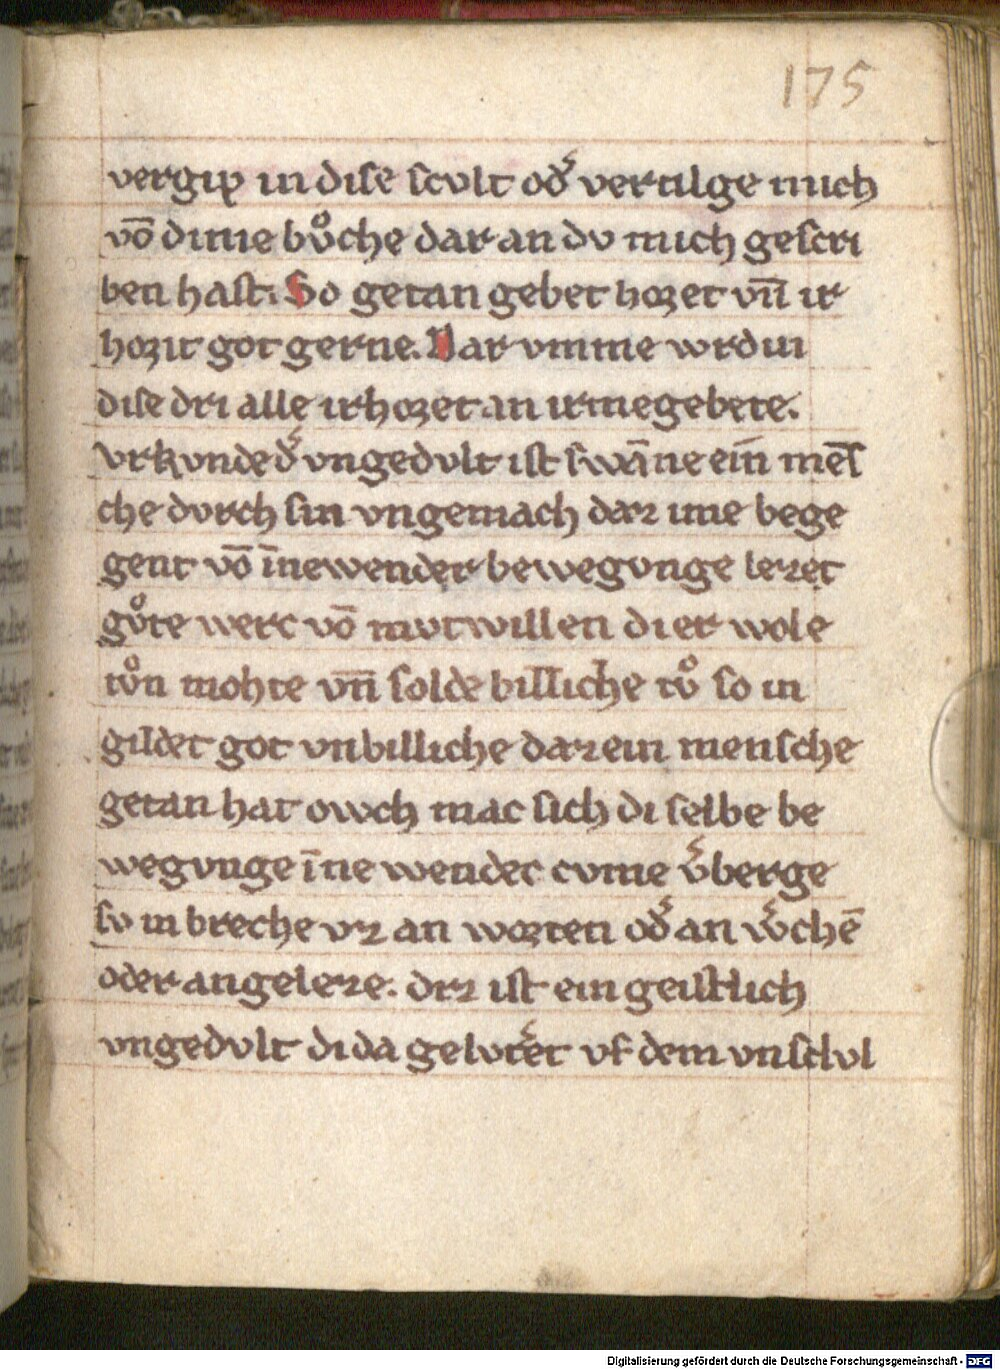 175
vergip in dise scvlt od͛ vertilge mich
vō dime bvͦche dar an dv mich gescri
ben hast. So getan gebet horet vn̄ ir
horit got gerne. Dar vmme wrdin
dise dri alle irhoret an irme gebete.
vrkvnde d͛ vngedvlt ist swān ne ein̄ mēs
che dvrch sin vngemach daz ime bege
gent vō īnewender bewegvnge lezet
gvͦte werc vō mvtwillen di er wole
tvͦn mohte vn̄ solde billiche tvͦ so in
gildet got vnbilliche daz ein mensche
getan hat owch mac sich di selbe be
wegvnge īne wendec cvme v͛berge
sv in breche vz an worten od͛ an w͛chē
oder angeleze. diz ist ein geistlich
vngedvlt di da gelvt͛et vf dem vnsclvl
Digitalisierung gefördert durch die Deutsche Forschungsgemeinschaft - DFG